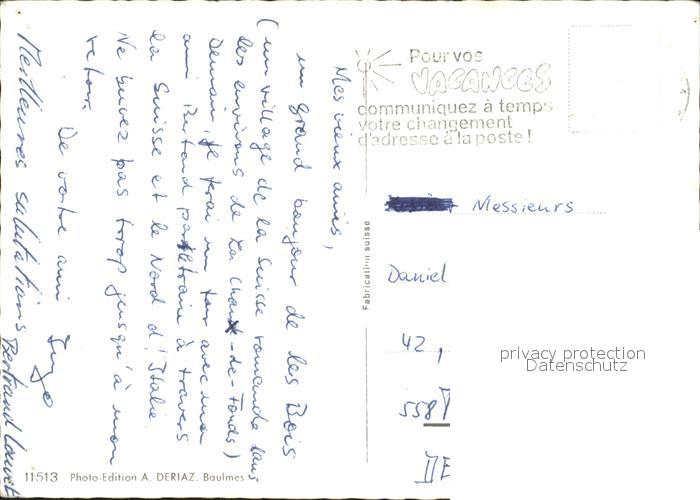 Mes vieux amies,
un grand bonjour de les Bois
(un village de la Suisse romande dans
les environs de La Chaux-de-Fonds)
Demain, je ferai un tour avec mon
ami Bertrand par le train à travers
la Suisse et le Nord d'Italie.
Ne buvez pas trop jusqu'à mon
retour.
De votre ami Ingo
Meilleures salutations Bertrand
Pour vos
VACANCES
communiquez à temps
votre changement
d'adresse à la poste!
Messieurs
Daniel
42,
558
DE
Fabrication suisse
11513 Photo-Edition A. DERIAZ. Baulmes
privacy protection
Datenschutz